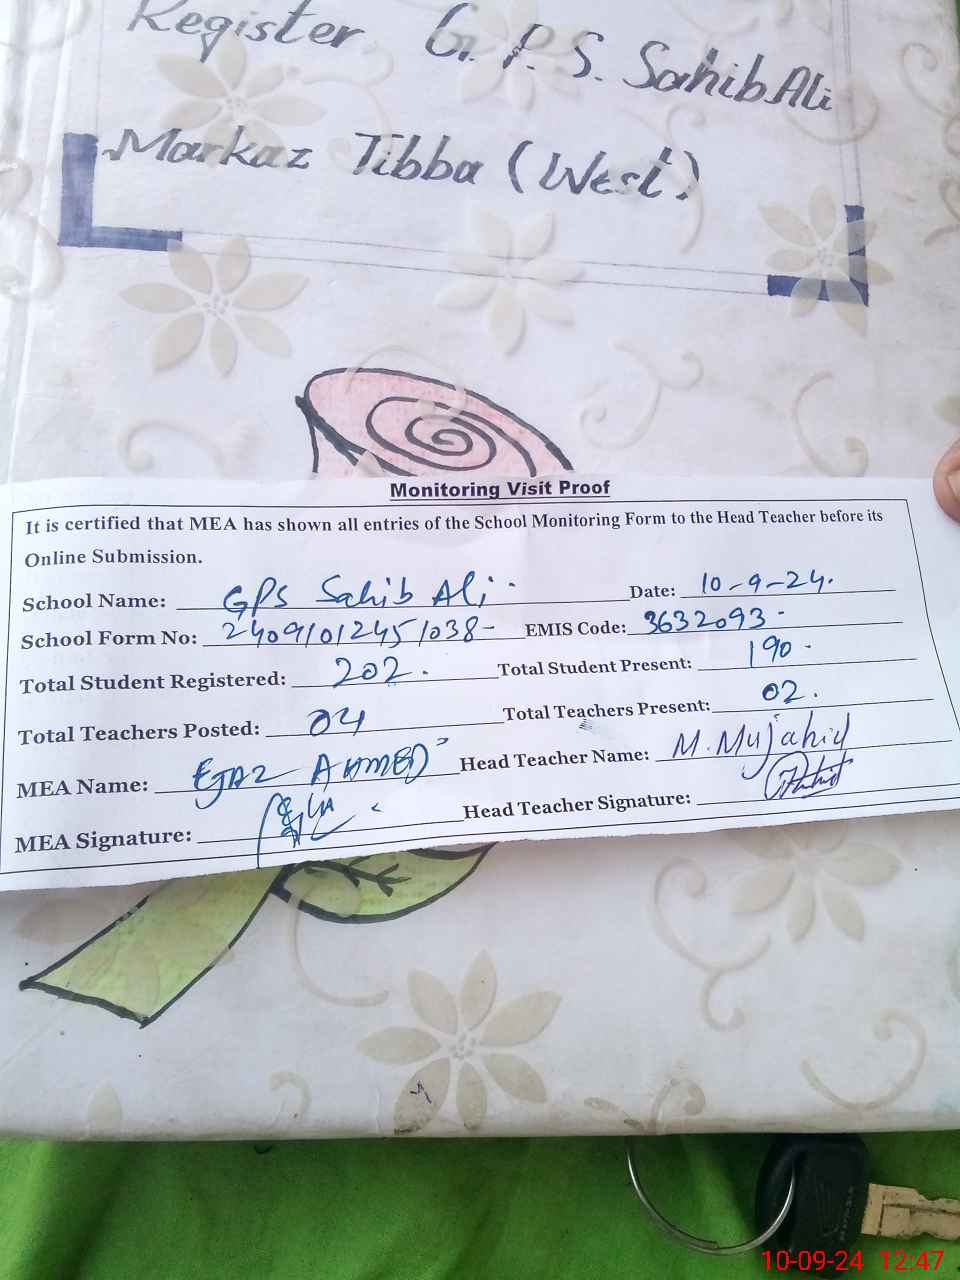 Register G.P.S. Sahib Ali
Markaz Tibba (West)
Monitoring Visit Proof
It is certified that MEA has shown all entries of the School Monitoring Form to the Head Teacher before its
Online Submission.
School Name: GPS Sahib Ali Date: 10-9-24.
School Form No: 24091012451038- EMIS Code: 3632093-
Total Student Registered: 202. Total Student Present: 190-
Total Teachers Posted: 04 Total Teachers Present: 02.
MEA Name: EJAZ AHMED Head Teacher Name: M. Mujahid
MEA Signature: Head Teacher Signature:
10-09-24 12:47